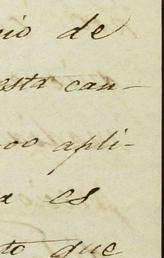 nio de
esta can-
oo apli-
a es
to que